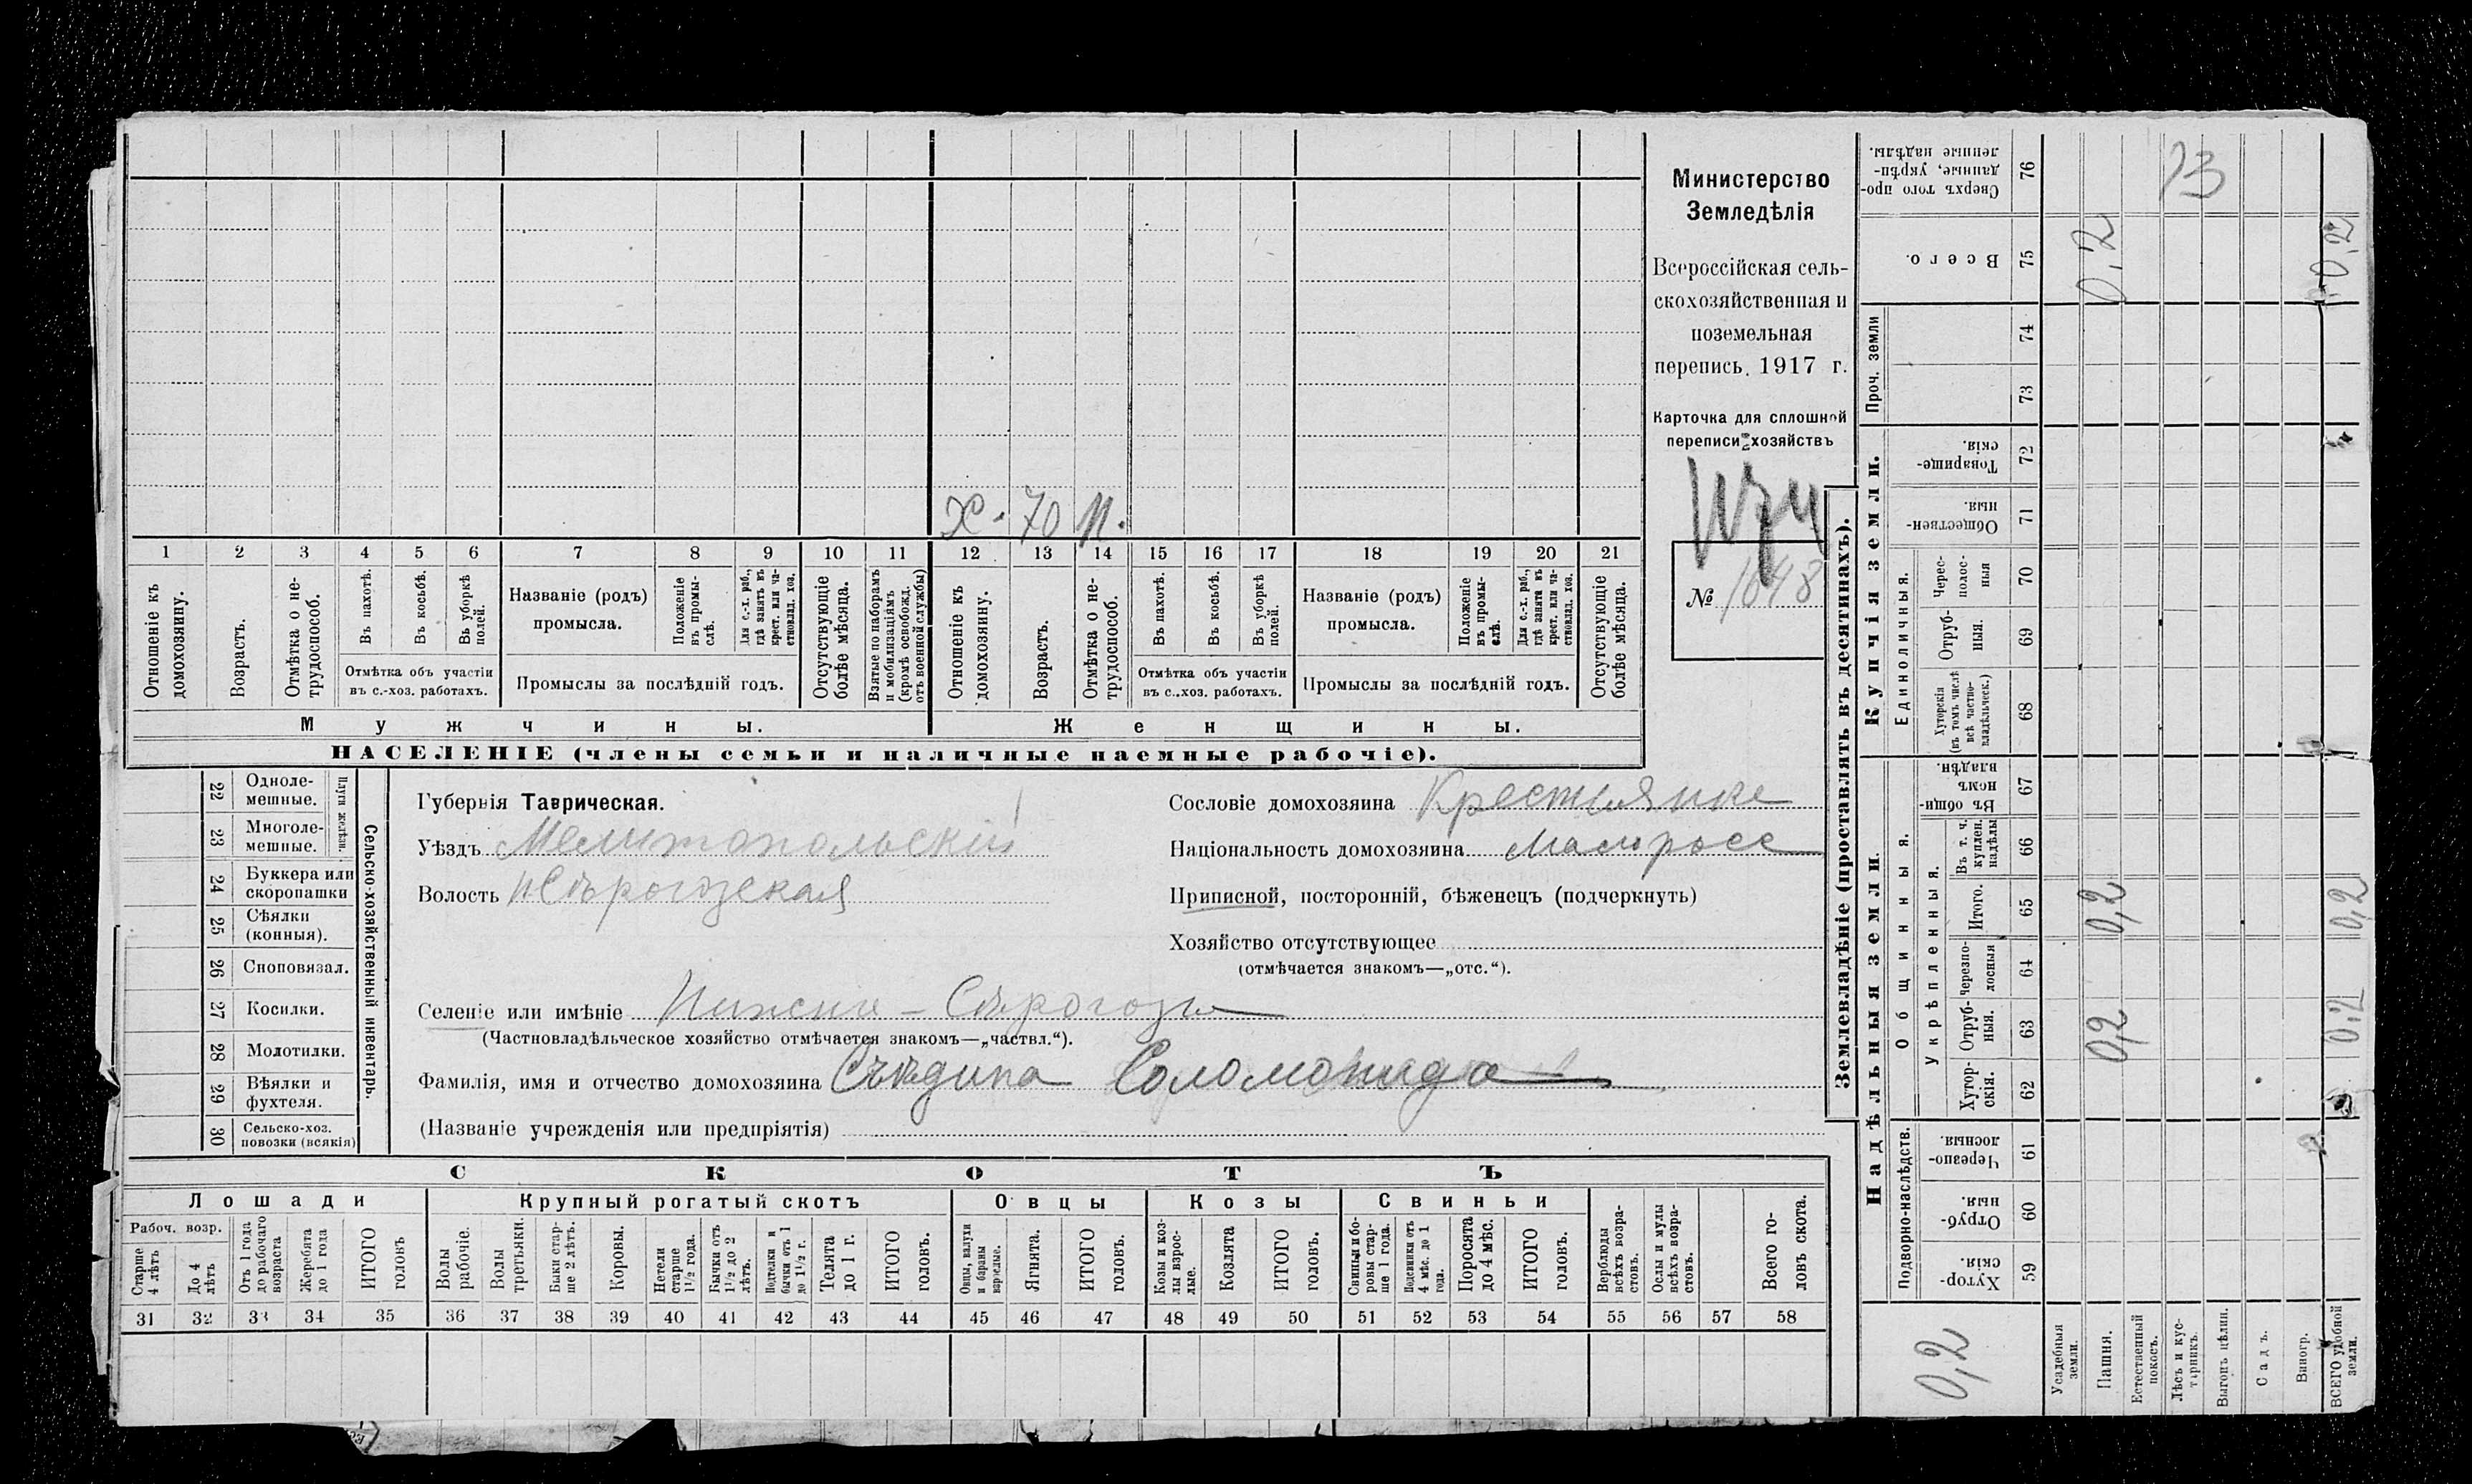 Министерство
Земледѣлія
Всероссійская сель-
скохозяйственная и
поземельная
перепись. 1917 г.
Карточка для сплошной
переписи хозяйствъ
№ 1648
Х. 70 н.
1 2 3 4 5 6 7 8 9 10 11 12 13 14 15 16 17 18 19 20 21
Отношеніе къ домохозяину.
Возрастъ.
Отмѣтка о не-трудоспособ.
Въ пахотѣ.
Въ косьбѣ.
Въ уборкѣ полей.
Отмѣтка объ участіи
въ с.-хоз. работахъ.
Названіе (родъ)
промысла.
Положеніе въ промы-слѣ.
Для с.-х. раб., гдѣ занятъ въ крест. или ча-стновлад. хоз.
Промыслы за послѣдній годъ.
Отсутствующіе болѣе мѣсяца.
Взятые по наборамъ и мобилизаціямъ (кромѣ освобожд. отъ военной службы)
Отношеніе къ домохозяину.
Возрастъ.
Отмѣтка о не-трудоспособ.
Въ пахотѣ.
Въ косьбѣ.
Въ уборкѣ полей.
Отмѣтка объ участіи
въ с.-хоз. работахъ.
Названіе (родъ)
промысла.
Положеніе въ промы-слѣ.
Для с.-х. раб., гдѣ занята въ крест. или ча-стновлад. хоз.
Промыслы за послѣдній годъ.
Отсутствующіе болѣе мѣсяца.
Мужчины. Женщины.
НАСЕЛЕНІЕ (члены семьи и наличные наемные рабочіе).
Сельско-хозяйственный инвентарь.
Плуги желѣзн.
22 Одноле-мешные.
23 Многоле-мешные.
24 Буккера или скоропашки
25 Сѣялки (конныя).
26 Сноповязал.
27 Косилки.
28 Молотилки.
29 Вѣялки и фухтеля.
30 Сельско-хоз. повозки (всякія)
Губернія Таврическая.
Уѣздъ Мелитопольскій
Волость Н Сѣрогозская
Сословіе домохозяина Крестьянка
Національность домохозяина Малоросс
Приписной, посторонній, бѣженецъ (подчеркнуть)
Хозяйство отсутствующее
(отмѣчается знакомъ—„отс.“).
Селеніе или имѣніе Нижни - Сѣрогозы
(Частновладѣльческое хозяйство отмѣчается знакомъ—„частвл.“).
Фамилія, имя и отчество домохозяина Соломонида
(Названіе учрежденія или предпріятія)
СКОТЪ
Лошади Крупный рогатый скотъ Овцы Козы Свиньи
Рабоч. возр.
Старше 4 лѣтъ
До 4 лѣтъ
Отъ 1 года до рабочаго возраста
Жеребята до 1 года
ИТОГО головъ
Волы рабочіе.
Волы третьяки.
Быки стар-ше 2 лѣтъ.
Коровы.
Нетели старше 1½ года.
Бычки отъ 1½ до 2 лѣтъ.
Подтелки и бычки отъ 1 до 1½ г.
Телята до 1 г.
ИТОГО головъ.
Овцы, валухи и бараны взрослые.
Ягнята.
ИТОГО головъ.
Козы и коз-лы взрос-лые.
Козлята
ИТОГО головъ.
Свиньи и бо-ровы стар-ше 1 года.
Подсвинки отъ 4 мѣс. до 1 года.
Поросята до 4 мѣс.
ИТОГО головъ.
Верблюды всѣхъ возра-стовъ.
Ослы и мулы всѣхъ возра-стовъ.
Всего го-ловъ скота.
31 32 33 34 35 36 37 38 39 40 41 42 43 44 45 46 47 48 49 50 51 52 53 54 55 56 57 58
Землевладѣніе (проставлять въ десятинахъ).
Надѣльныя земли.
Купчія земли.
Проч. земли
Подворно-наслѣдств.
Общинныя.
Укрѣпленныя.
Единоличныя.
Хутор-скія. 59
Отруб-ныя. 60
Черезпо-лосныя. 61
Хутор-скія. 62
Отруб-ныя. 63
Черезпо-лосныя 64
Итого. 65
Въ т. ч. куплен. надѣлы 66
Въ общин-номъ владѣн. 67
Хуторскія (въ томъ числѣ всѣ частно-владѣльческ.) 68
Отруб-ныя. 69
Черес-полос-ныя 70
Обществен-ныя. 71
Товарище-скія. 72
73
74
Всего. 75
Сверхъ того про-данные, укрѣп-ленные надѣлы. 76
0,2
Усадебныя земли.
Пашня. 0,2 0,2 0,2
Естественный покосъ.
Лѣсъ и кус-тарникъ.
Выгонъ цѣлин.
Садъ.
Виногр.
ВСЕГО удобной земли. 0,2 0,2 0,2
13